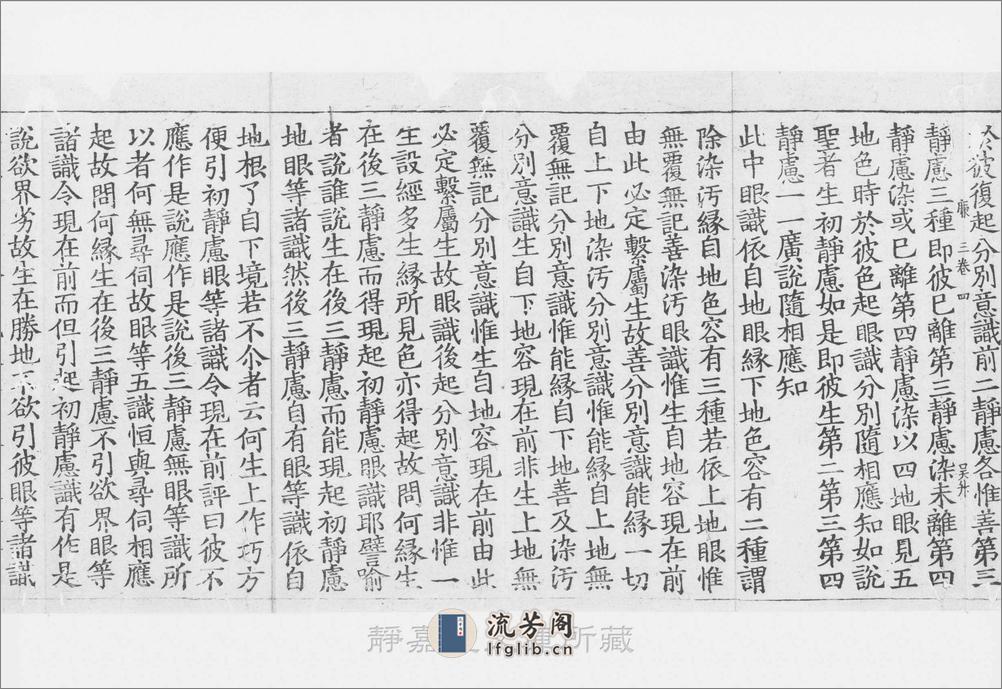 於彼復起分別意識前二靜慮各惟善第三
三卷 四
靜慮三種即彼已離第三靜慮染未離第四
靜慮染或已離第四靜慮染以四地眼見五
地色時於彼色起眼識分別隨相應知如說
聖者生初靜慮如是即彼生第二第三第四
靜慮一一廣說隨相應知
此中眼識依自地眼緣下地色容有二種謂
除染污緣自地色容有三種若依上地眼惟
無覆無記善染污眼識惟生自地容現在前
由此必定繫屬生故善分別意識能緣一切
自上下地染污分別意識惟能緣自上地無
覆無記分別意識惟能緣自下地善及染污
分別意識生自下地容現在前非生上地無
覆無記分別意識惟生自地容現在前由此
必定繫屬生故眼識後起分別意識非惟一
生設經多生緣所見色亦得起故問何緣生
在後三靜慮而得現起初靜慮眼識耶譬喻
者說誰說生在後三靜慮而能現起初靜慮
地眼等諸識然後三靜慮自有眼等識依自
地根了自下境若不尒者云何生上作巧方
便引初靜慮眼等諸識令現在前評曰彼不
應作是說應作是說後三靜慮無眼等識所
以者何無尋伺故眼等五識恒與尋伺相應
起故問何緣生在後三靜慮不引欲界眼等
諸識令現在前而但引起初靜慮識有作是
說欲界劣故生在勝地不欲引彼眼等諸識
靜嘉 所藏
流芳阁
lfglib.cn